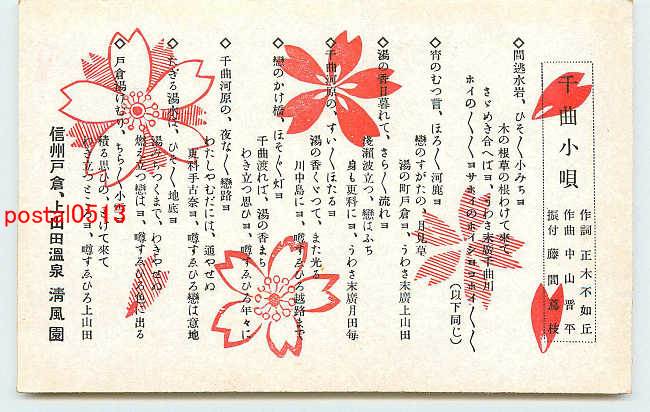 千曲小唄
作詞 正木不如丘
作曲 中山晋平
振付 藤間蔦枝
◇間遠水岩、ひそ〳〵小みちヨ
木の根草の根わけて來て
さゞめき合へばヨ、うわさ末廣千曲川
ホイノ〳〵〳〵ヨサホイのホイシヨコホイ〳〵〳〵
(以下同じ)
◇宵のむつ言、ほろ〳〵河鹿ヨ
戀のすがたの、月見草
湯の町戸倉ヨ、うわさ末廣上山田
◇湯の香日暮れて、さら〳〵流れヨ
淺瀬波立つ、戀はふち
身も更科にヨ、うわさ末廣月田毎
◇千曲河原の、すい〳〵ほたるヨ
湯の香くゞつて、また光る
川中島にヨ、噂すゑひろ越路まで
◇戀のかけ橋、ほそ〴〵灯ヨ
千曲渡れば、湯の香まち
わき立つ思ひヨ、噂すゑひろ年々に
◇千曲河原の、夜な〳〵戀路ヨ
わたしやむだには、通やせぬ
更科手古奈ヨ、噂すゑひろ戀は意地
◇たぎる湯水は、ひそ〳〵地底ヨ
湯きつくまで、わきやせぬ
燃ゆる戀はヨ、噂すゑひろ色に出る
◇戸倉湯けむり、ちら〳〵小雪ヨ
積る思ひの、とけて來て
わき立つところヨ、噂すゑひろ上山田
信州戸倉、上山田溫泉 清風園
postal0513